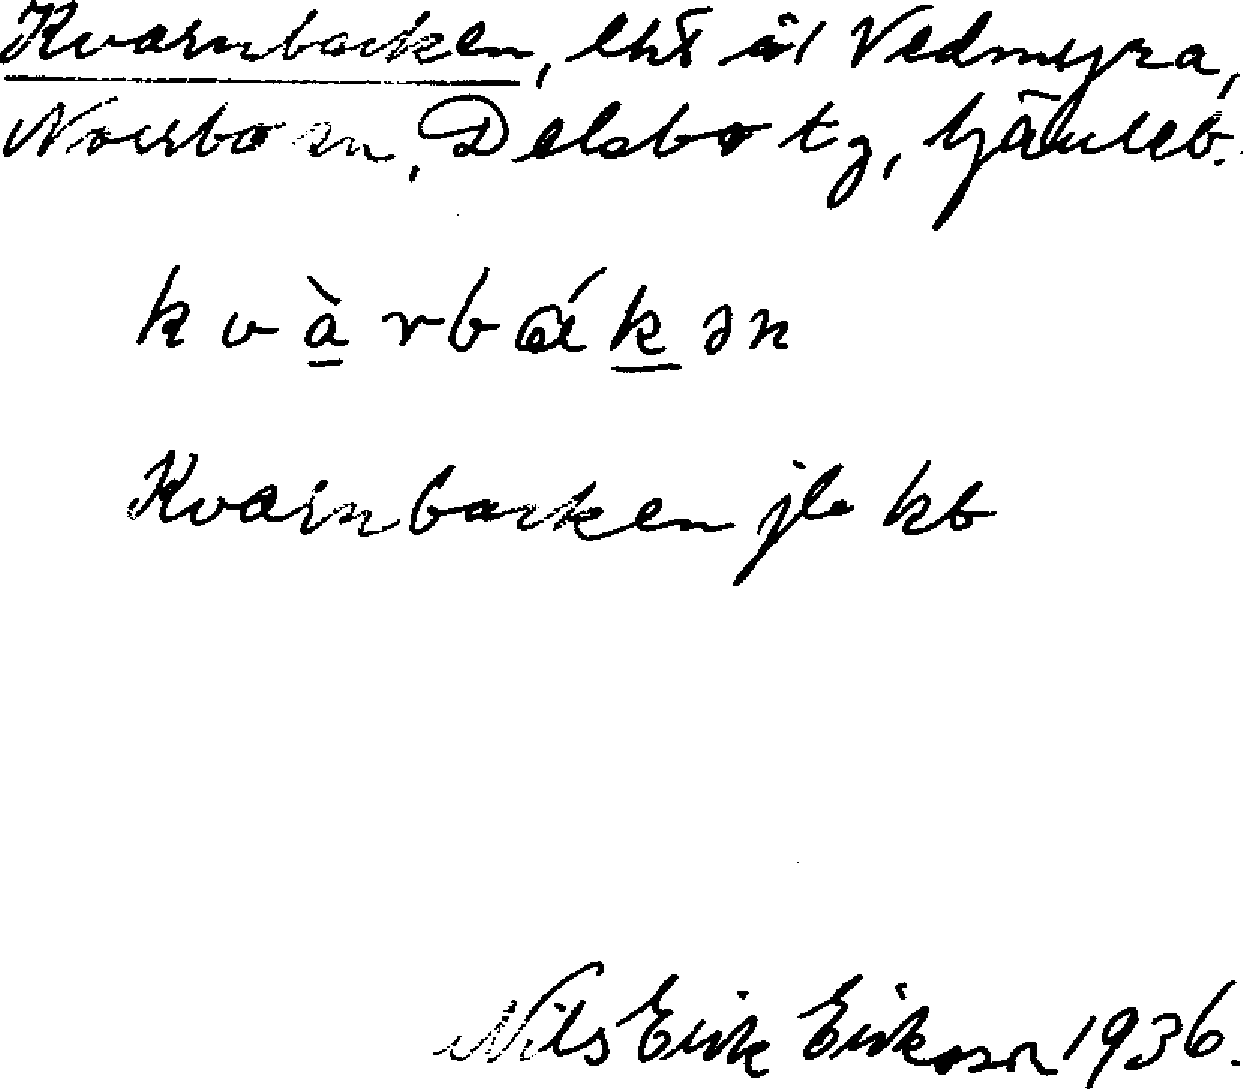 Kvarnbacken, lht åt Vedmyra,
Norrbo sn, Delsbo tg, Gävleb.
kvàrbákən
Kvarnbacken jb kb
Nils Erik Erikson 1936.